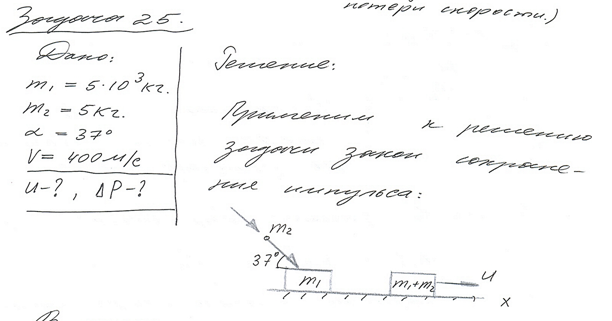 потери скорости.)
Задача 25.
Дано:
m₁ = 5·10³кг.
m₂ = 5кг.
α = 37°
V = 400 м/с
u-?, ΔP-?
Решение:
Применим к решению
задачи закон сохране-
ния импульса:
m₂
37°
m₁
m₁+m₂
u
x